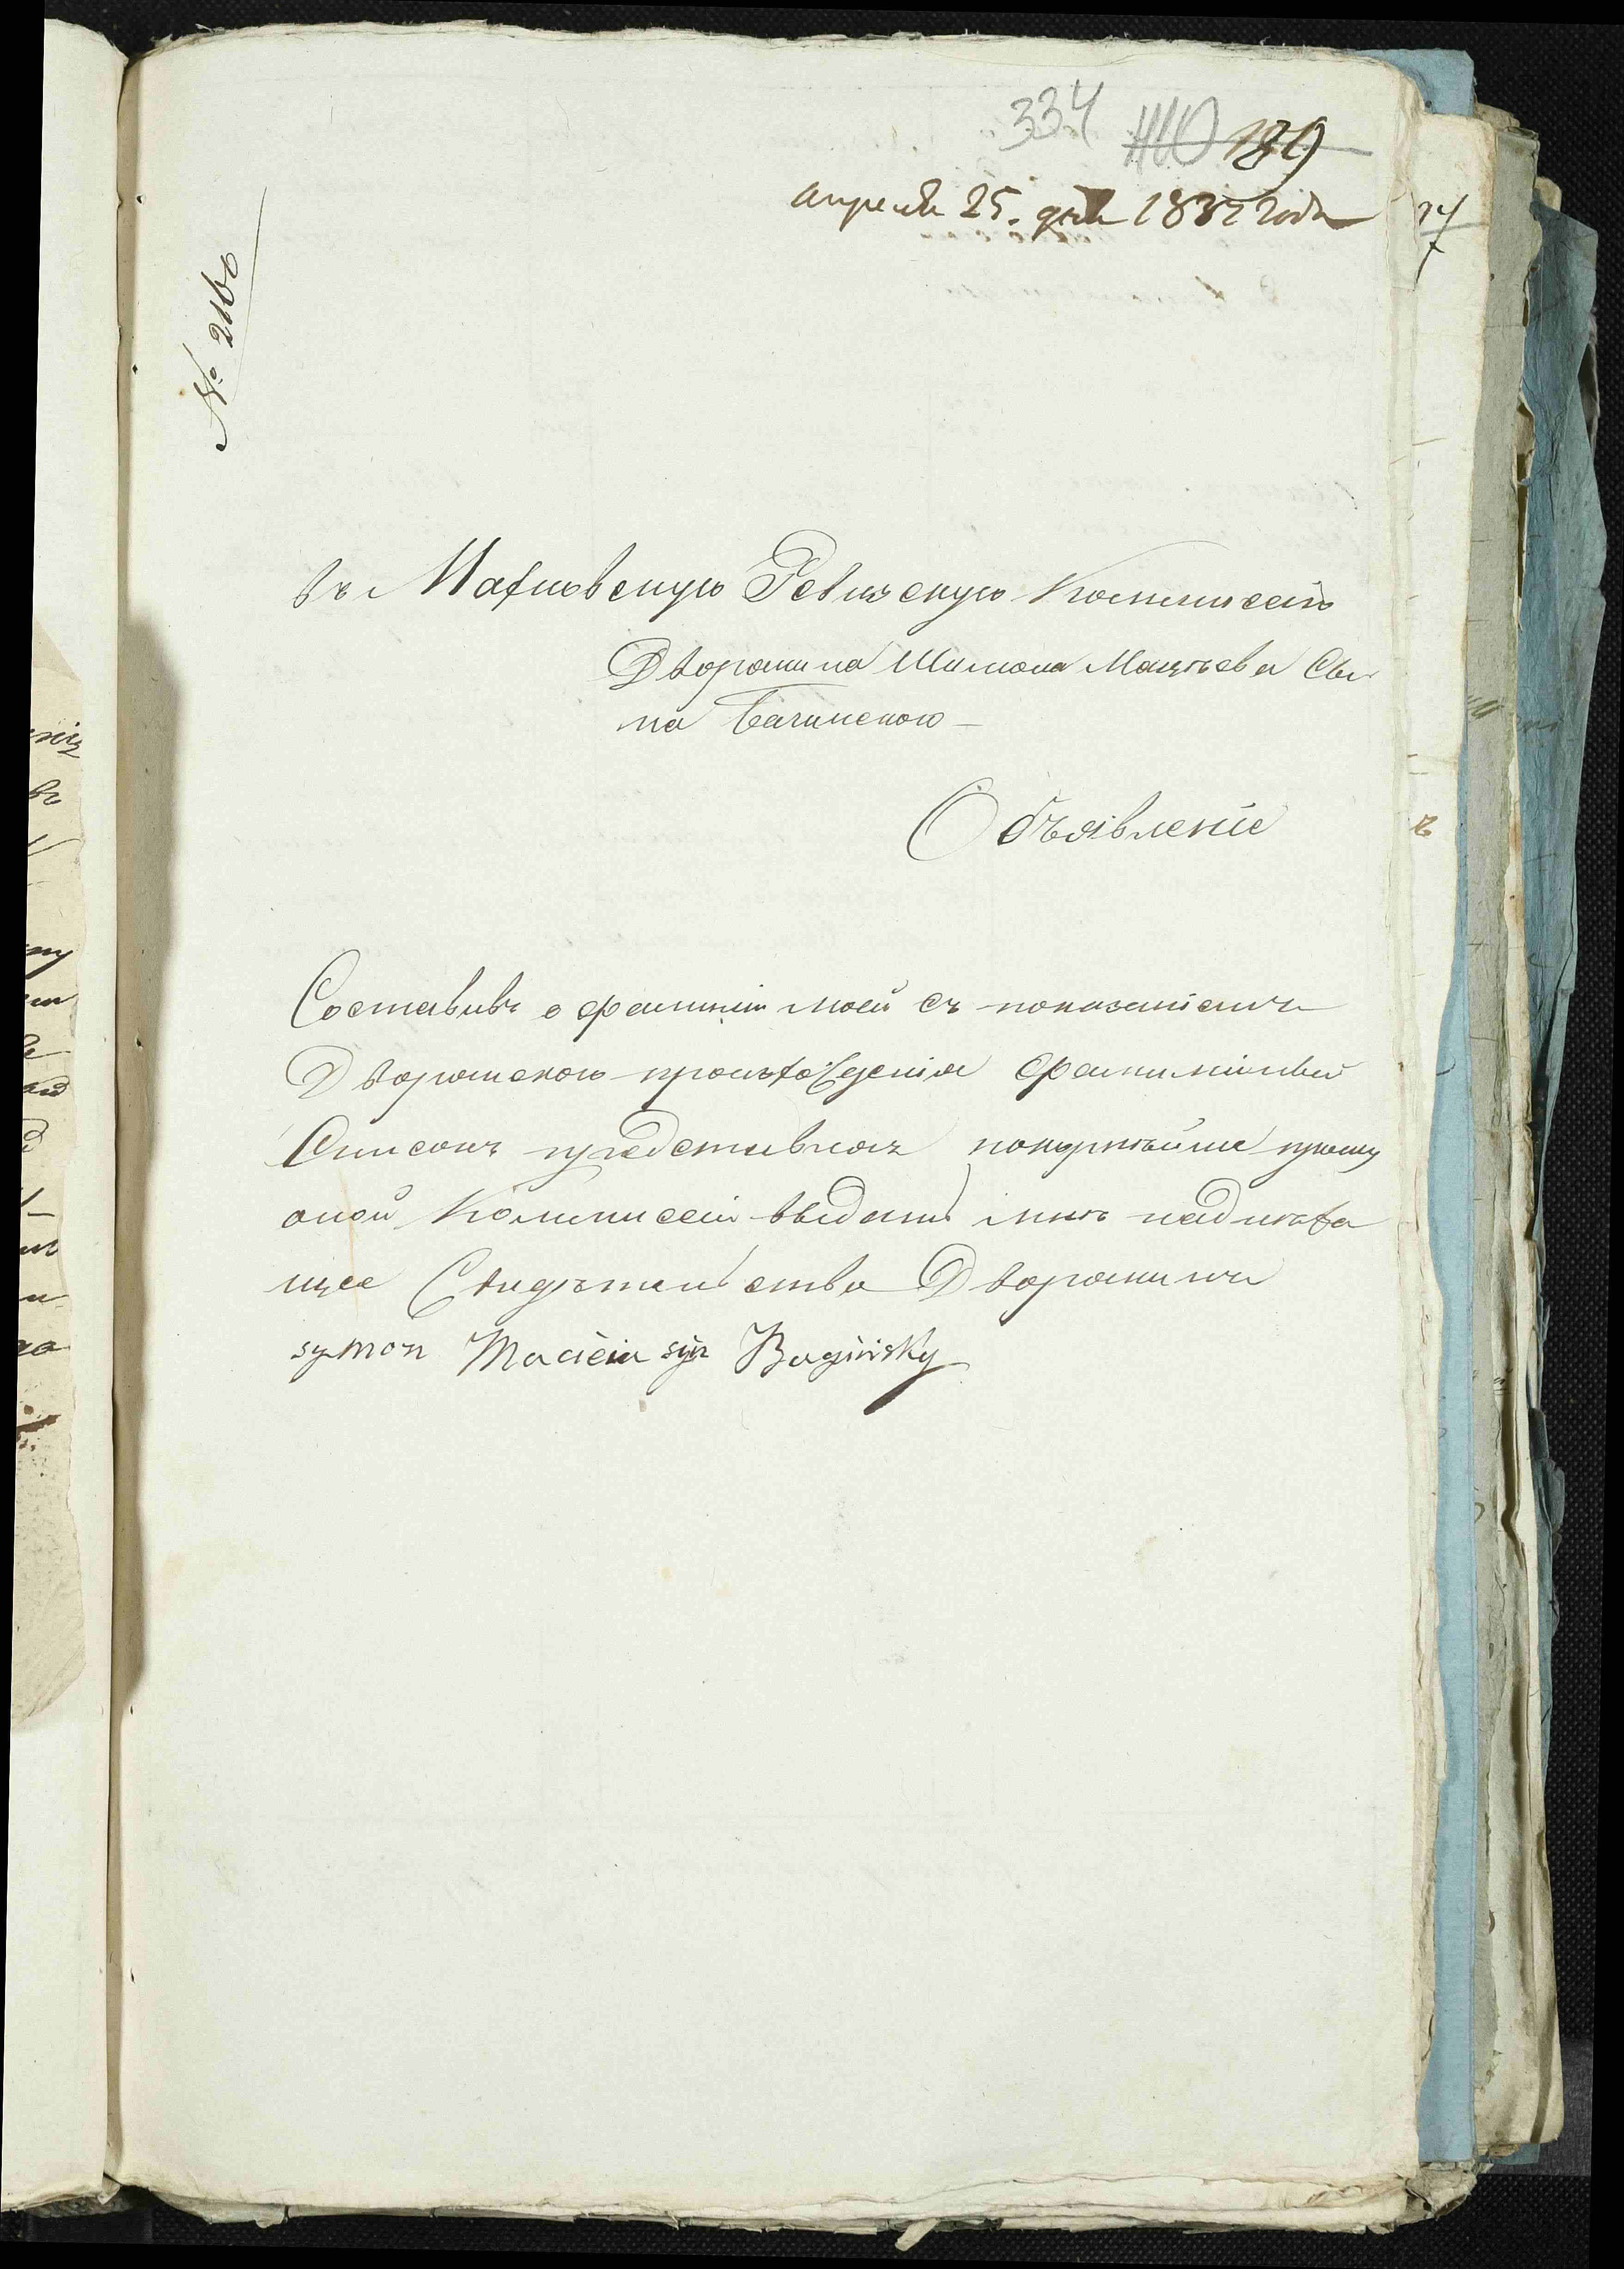 334 189
апреля 25. дня 1832 года
№ 2160
въ Махновскую Ревизскую Коммисеію
Дворянина Шимона Мацѣева Сы-
на Багинского –
Объявленіе
Составивъ о фамиліи моей съ показаніемъ
Дворянского произхожденія Фамилийный
Списокъ представляя покорнѣйше прошу
оной Коммисеіи выдать мнѣ надлежа
щее Свидѣтельство Дворянинъ
symon Macieia syn Baginsky